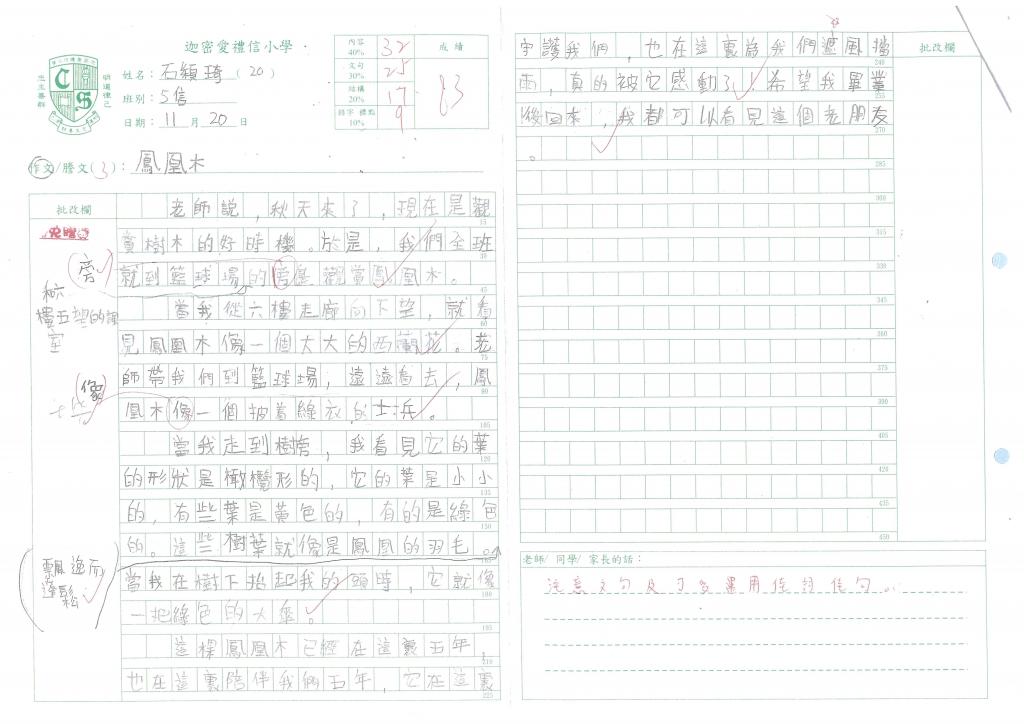 迦密愛禮信小學
姓名：石穎琦（20）
班別：5信
日期：11月20日
內容 40% 32
文句 30% 25
結構 20% 17
錯字 標點 10% 9
成績
83
作文/謄文(3)：鳳凰木
批改欄
老師說，秋天來了，現在是觀
賞樹木的好時機。於是，我們全班
就到籃球場的旁邊觀賞鳳凰木。
當我從六樓走廊向下望，就看
見鳳凰木像一個大大的西蘭花。老
師帶我們到籃球場，遠遠看去，鳳
凰木像一個披着綠衣的士兵。
當我走到樹旁，我看見它的葉
的形狀是橄欖形的，它的葉是小小
的，有些葉是黃色的，有的是綠色
的。這些樹葉就像是鳳凰的羽毛。
當我在樹下抬起我的頭時，它就像
一把綠色的大傘。
這棵鳳凰木已經在這裏五年，
也在這裏陪伴我們五年，它在這裏
旁
像
飄逸而
蓬鬆
批改欄
守護我們，也在這裏為我們遮風擋
雨，真的被它感動了！希望我畢業
後回來，我都可以看見這個老朋友
。
老師/ 同學/ 家長的話：
注意文句及可多運用佳詞佳句。